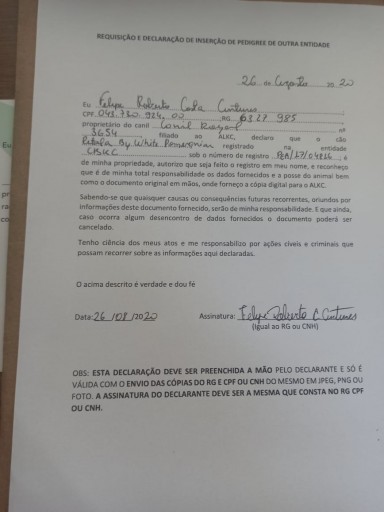 REQUISIÇÃO E DECLARAÇÃO DE INSERÇÃO DE PEDIGREE DE OUTRA ENTIDADE
26 de Agosto de 20
Eu Felipe Roberto Costa
CPF 041.780.924.00 RG 985
proprietário do canil Canil nº
3654, filiado ao ALKC, declaro que o cão
By White Pomeranian registrado na entidade
CBKC sob o número de registro, e
de minha propriedade, autorizo que seja feito o registro em meu nome, e reconheço
que é de minha total responsabilidade os dados fornecidos e a posse do animal bem
como o documento original em mãos, onde forneço a cópia digital para o ALKC.
Sabendo-se que quaisquer causas ou consequências futuras recorrentes, oriundos por
informações deste documento fornecido, serão de minha responsabilidade. E que ainda,
caso ocorra algum desencontro de dados fornecidos o documento poderá ser
cancelado.
Tenho ciência dos meus atos e me responsabilizo por ações cíveis e criminais que
possam recorrer sobre as informações aqui declaradas.
O acima descrito é verdade e dou fé
Data: 26 /08 /2020 Assinatura: Felipe Roberto C
(Igual ao RG ou CNH)
OBS: ESTA DECLARAÇÃO DEVE SER PREENCHIDA A MÃO PELO DECLARANTE E SÓ É
VÁLIDA COM O ENVIO DAS CÓPIAS DO RG E CPF OU CNH DO MESMO EM JPEG, PNG OU
FOTO. A ASSINATURA DO DECLARANTE DEVE SER A MESMA QUE CONSTA NO RG CPF
OU CNH.